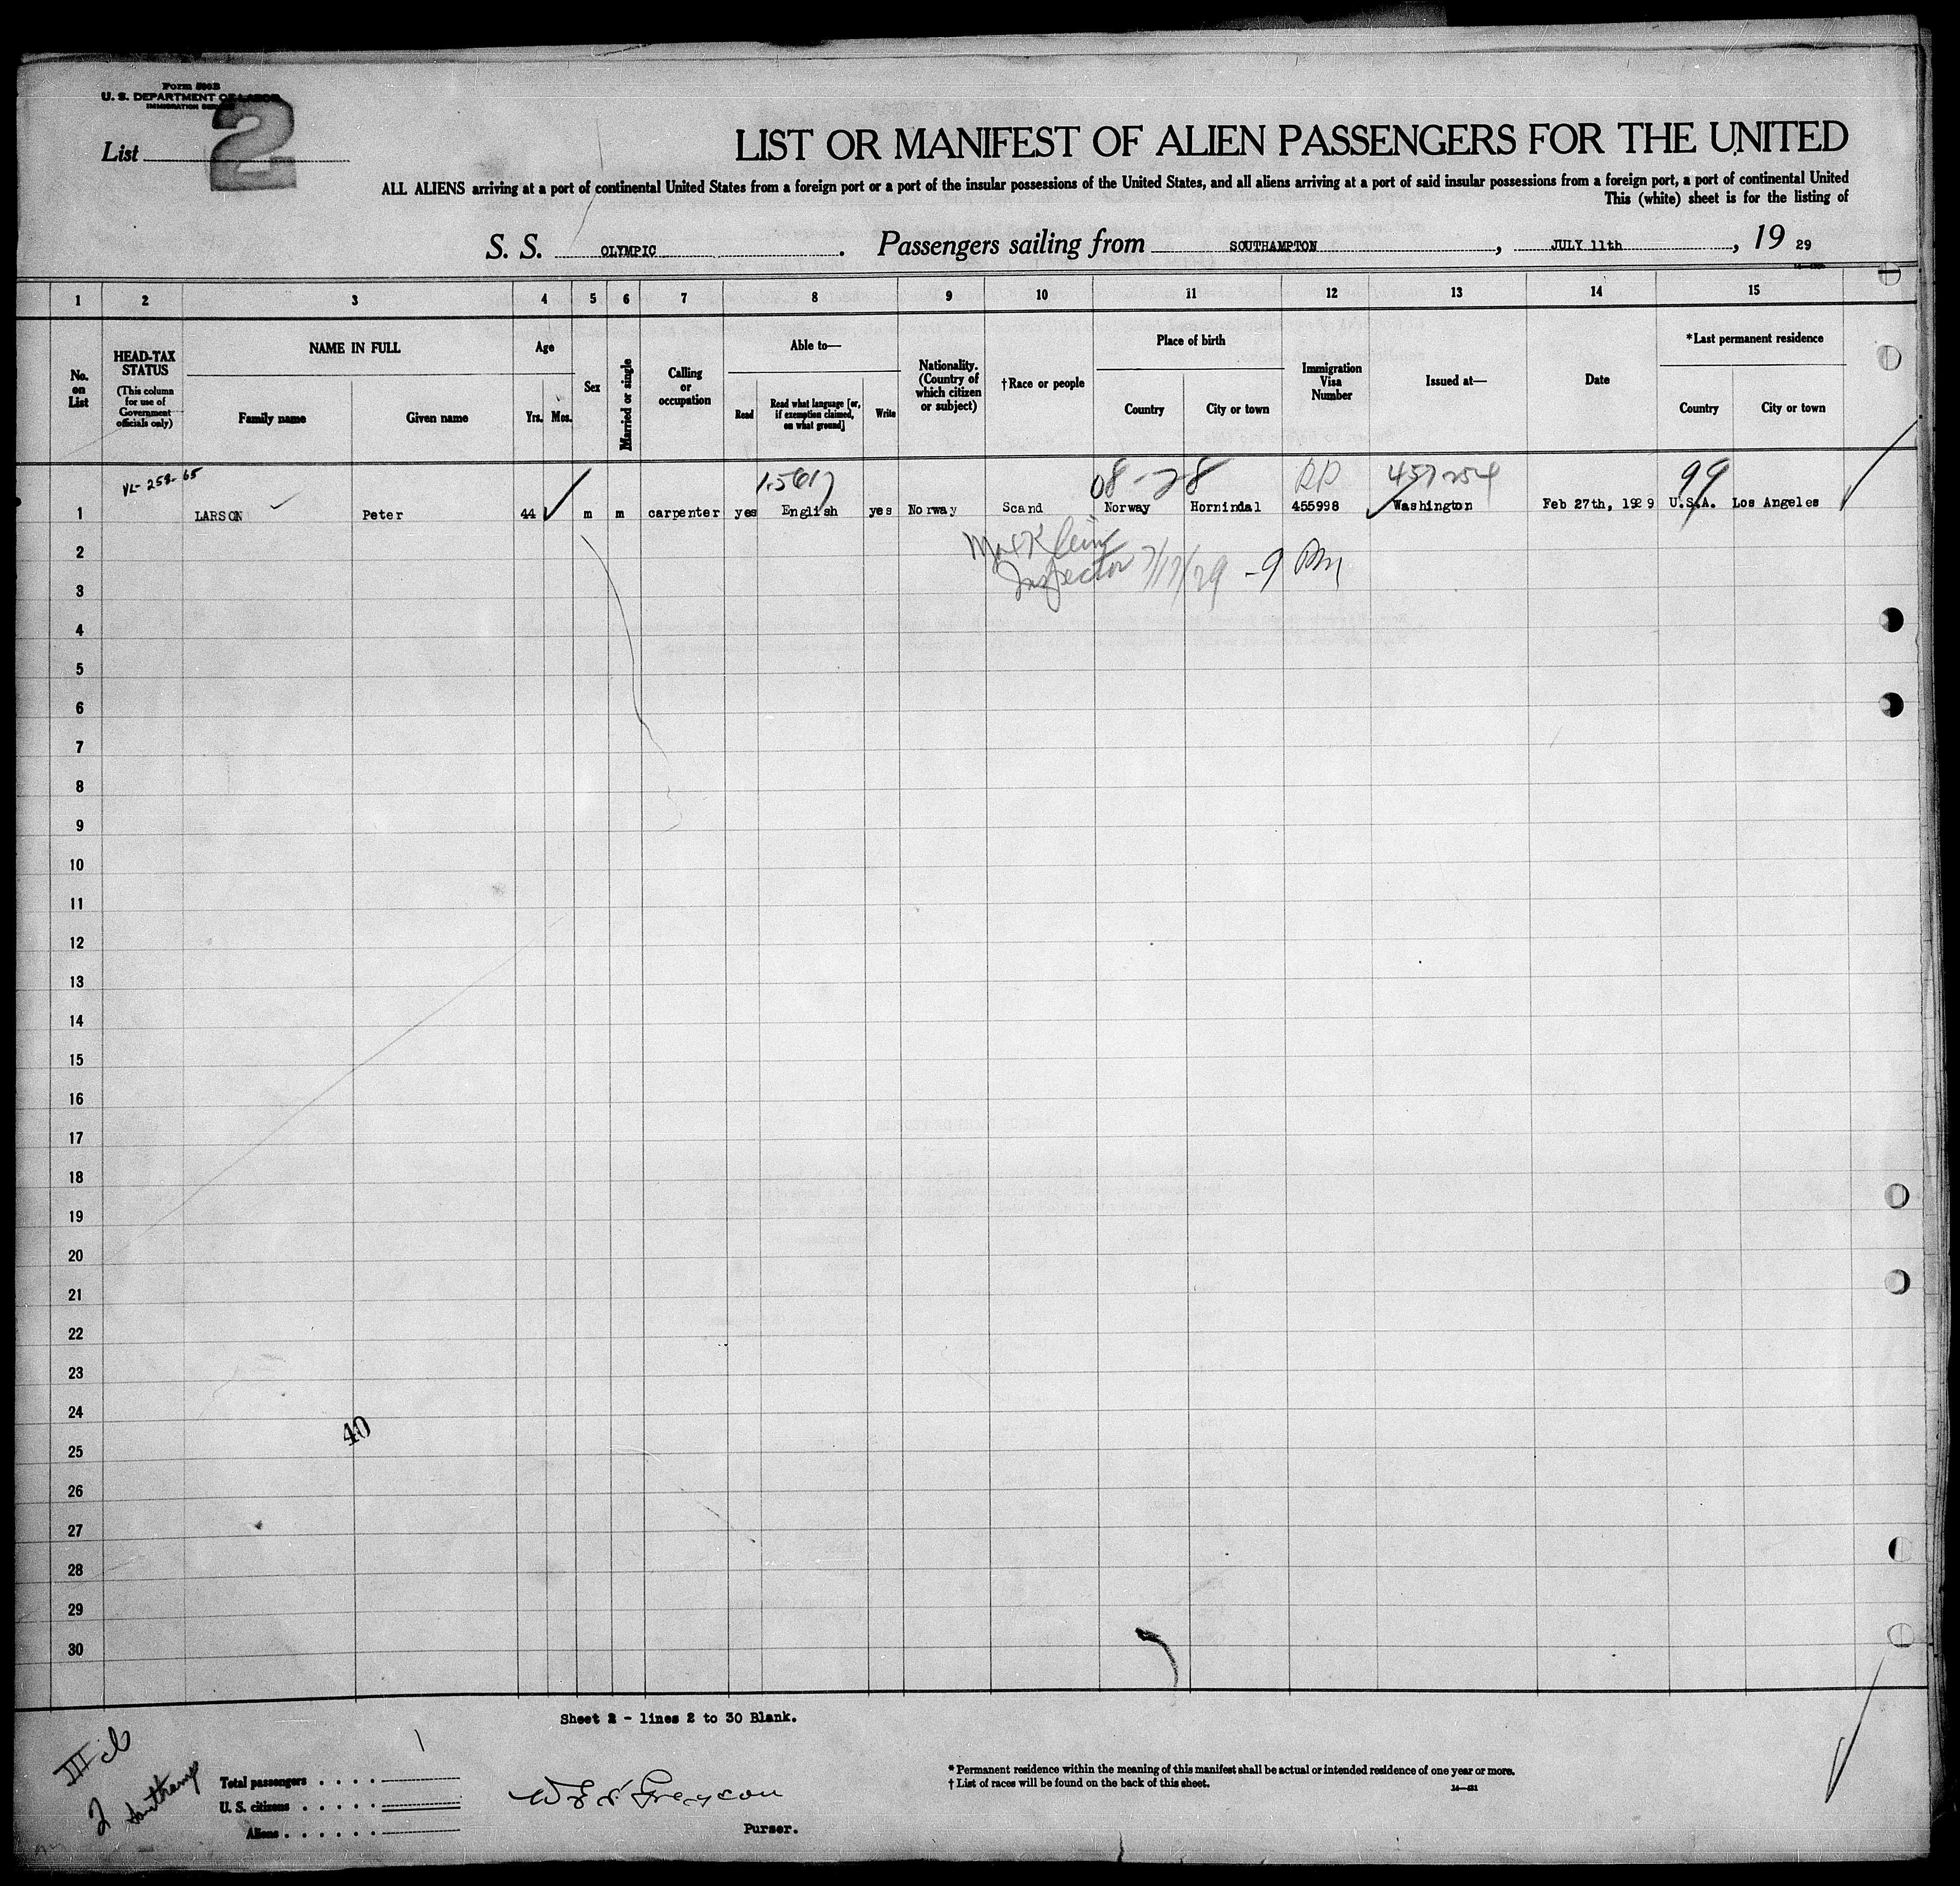 Form 500B
U. S. DEPARTMENT OF LABOR
IMMIGRATION SERVICE
List 2
LIST OR MANIFEST OF ALIEN PASSENGERS FOR THE UNITED
ALL ALIENS arriving at a port of continental United States from a foreign port or a port of the insular possessions of the United States, and all aliens arriving at a port of said insular possessions from a foreign port, a port of continental United
This (white) sheet is for the listing of
S. S. OLYMPIC. Passengers sailing from SOUTHAMPTON, JULY 11th, 19 29
1 2 3 4 5 6 7 8 9 10 11 12 13 14 15
No. on List
HEAD-TAX STATUS
(This column for use of Government officials only)
NAME IN FULL
Family name
Given name
Age
Yrs. Mos.
Sex
Married or single
Calling or occupation
Able to—
Read
Read what language [or, if exemption claimed, on what ground]
Write
Nationality. (Country of which citizen or subject)
†Race or people
Place of birth
Country
City or town
Immigration Visa Number
Issued at—
Date
*Last permanent residence
Country
City or town
VL- 258-65 08-28 RP 457254 99
1 LARSON Peter 44 m m carpenter yes English yes Norway Scand Norway Hornindal 455998 Washington Feb 27th, 1929 U.S.A. Los Angeles
2
Inspector 7/17/29 -9 PM
3
4
5
6
7
8
9
10
11
12
13
14
15
16
17
18
19
20
21
22
23
24
40
25
26
27
28
29
30
Sheet 2 - lines 2 to 30 Blank.
III cl
2 Southamp
Total passengers . . . . 1
U. S. citizens . . . . .
Aliens . . . . . .
Purser.
* Permanent residence within the meaning of this manifest shall be actual or intended residence of one year or more.
† List of races will be found on the back of this sheet.